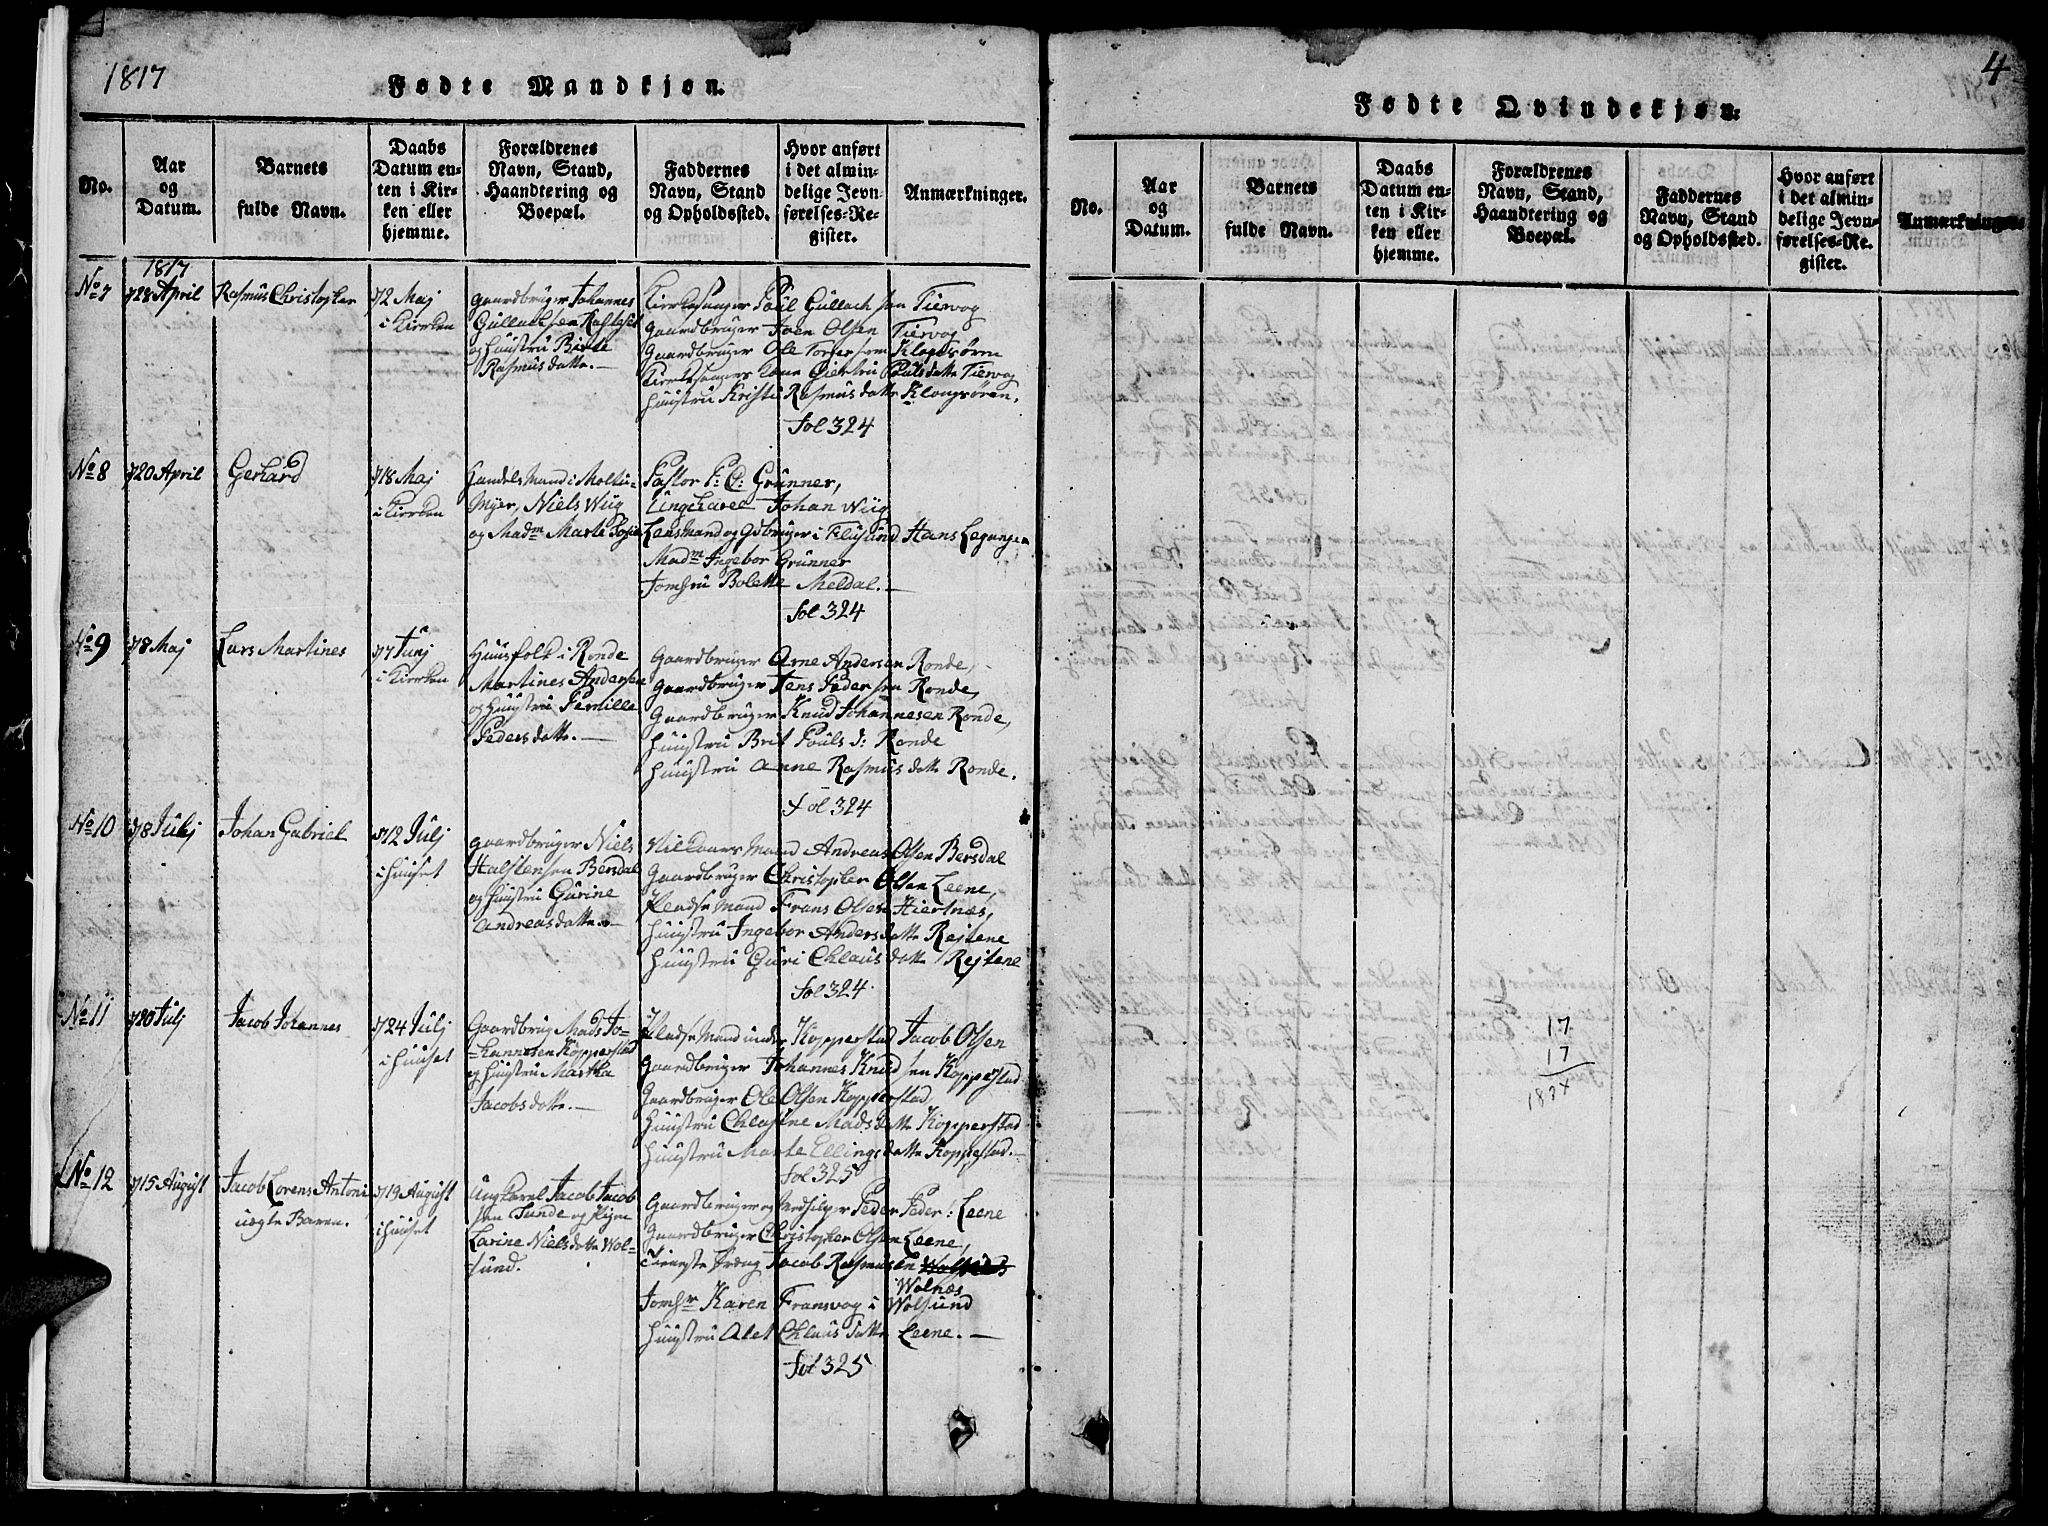 1817
Fødte Mandkjøn.
No.
Aar
og
Datum.
Barnets
fulde Navn.
Daabs
Datum en-
ten i Kir-
ken eller
hjemme.
Forældrenes
Navn, Stand,
Haandtering og
Boepæl.
Faddernes
Navn, Stand
og Opholdssted.
Hvor anført
i det almin-
delige Jevn-
førelses-Re-
gister.
Anmærkninger.
1817
No 7
28 April
Rasmus Christopher
2 Maj
i Kirken
Gaardbruger Johannes
Gullachsen
og Hustru Birte
Rasmusdatte. —
Kirkesanger Poul Gullachsen Tiervog
Gaardbruger Joen Olsen Tiervog
Gaardbruger Ole Klongsøren
Kirkesangers Kone Poulsdatte Tiervog
Hustru Kristi Rasmusdatte Klongsøren.
Fol 324
No 8
20 April
Gerhard
18 Maj
i Kirken
Handels Mand i Moltu-
Myr, Niels Wiig
og Madm Marte Sopie
Pastor F: C: Grünner,
Ungkarl Johan Wiig
Lensmand og Gdbruger i Flusund Hans Legangen
Madm Ingebor Grünner
Jomfru Bolette Meldal. —
Fol 324
No 9
8 Maj
Lars Martines
7 Junj
i Kirken
Huusfolk i Ronde
Martines Andersen
og Hustru Pernille
Pedersdatte. —
Gaardbruger Arne Andersen Ronde,
Gaardbruger Jens Pedersen Ronde,
Gaardbruger Knud Johannesen Ronde,
Hustru Brit Pouls d: Ronde
Hustru Anne Rasmusdatte Ronde.
Fol 324
No 10
8 Julj
Johan Gabriel
12 Julj
i Huuset
Gaardbruger Niels
Halstensen Bersdal
og Hustru Gurine
Andreasdatte. —
Vilkaars Mand Andreas Olsen Bersdal
Gaardbruger Christopher Olsen Leene,
Pladse Mand Frans Olsen Hiertnæs,
Hustru Ingebor Andersdatte Rejtene
Hustru Guri Chlausdatte Rejtene
Fol 324
No 11
20 Julj
Jacob Johannes
24 Julj
i Huuset
Gaardbrug Mads Jo-
hannesen Kopperstad
og Hustru Martha
Jacobsdatte. —
Pladse Mand under Kopperstad Jacob Olsen
Gaardbruger Johannes Knudsen Kopperstad
Gaardbruger Ole Olsen Kopperstad,
Hustru Chlasine Madsdatte Kopperstad
Hustru Marte Ellingsdatte Kopperstad. —
Fol 325
No 12
15 August
Jacob Lorens Antoni
uægte Baren.
19 August
i Huuset
Ungkarl Jacob Jacob
sen Tunde og Pigen
Larine Nielsdatte Wol-
sund.
Gaardbruger og Peder Peder: Leene
Gaardbruger Christopher Olsen Leene,
Tieneste Dræng Jacob Rasmusen
Wolnæs
Jomfr Karen Fransvog i Wolsund
Hustru Alet Chlausdatte Leene. —
Fol 325
4
Fødte Qvindekjøn.
No.
Aar
og
Datum.
Barnets
fulde Navn.
Daabs
Datum en-
ten i Kir-
ken eller
hjemme.
Forældrenes
Navn, Stand,
Haandtering og
Boepæl.
Faddernes
Navn, Stand
og Opholdssted.
Hvor anført
i det almin-
delige Jevn-
førelses-Re-
gister.
Anmærkninger.
17
17